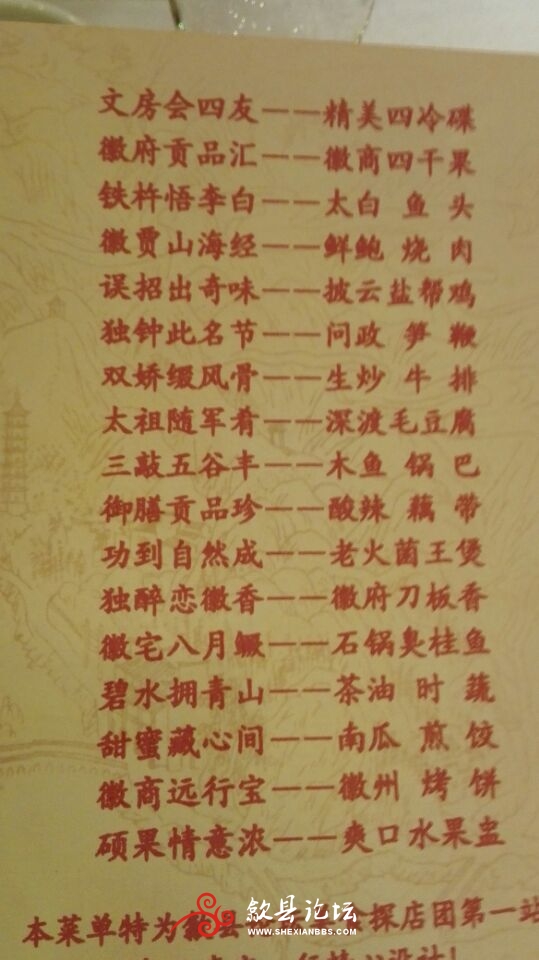 文房会四友——精美四冷碟
徽府贡品汇——徽商四干果
铁杵悟李白——太白 鱼 头
徽贾山海经——鲜鲍 烧 肉
误招出奇味——披云盐帮鸡
独钟此名节——问政 笋 鞭
双娇缀风骨——生炒 牛 排
太祖随军肴——深渡毛豆腐
三敲五谷丰——木鱼 锅 巴
御膳贡品珍——酸辣 藕 带
功到自然成——老火菌王煲
独醉恋徽香——徽府刀板香
徽宅八月鳜——石锅臭桂鱼
碧水拥青山——茶油 时 蔬
甜蜜藏心间——南瓜 煎 饺
徽商远行宝——徽州 烤 饼
硕果情意浓——爽口水果盅
本菜单特为 探店团第一站
设计!
歙县论坛
WWW.SHEXIANBBS.COM